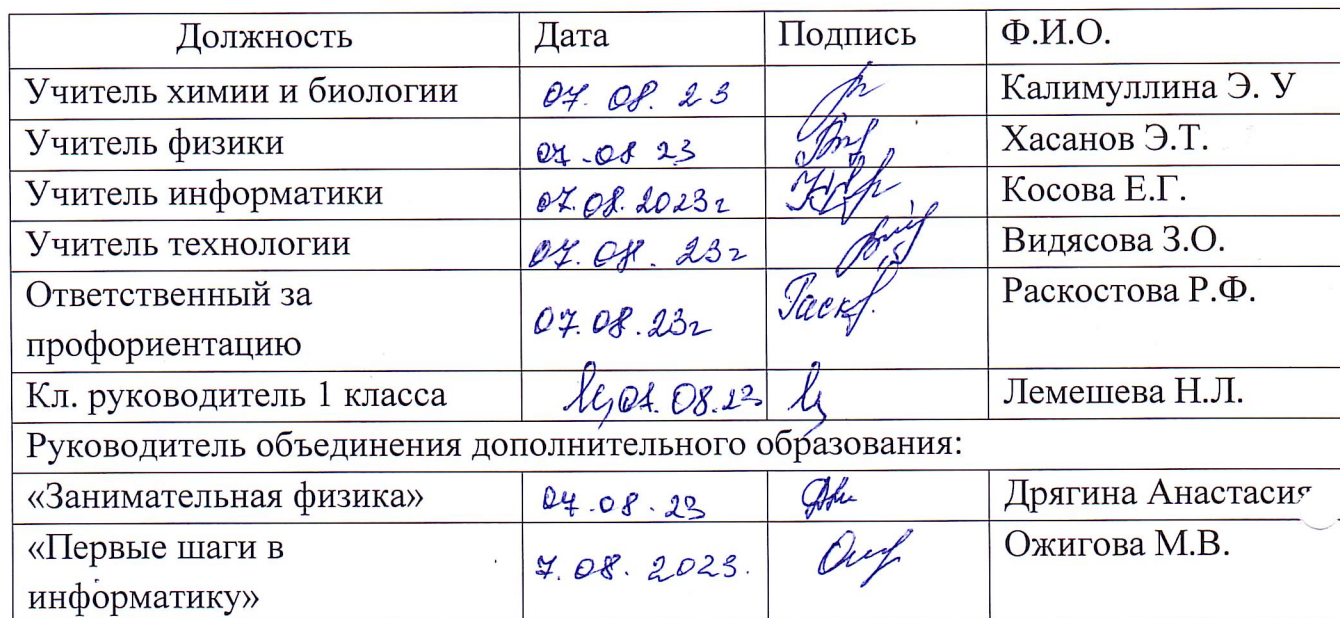 Должность Дата Подпись Ф.И.О.
Учитель химии и биологии 07.08.23 Калимуллина Э. У
Учитель физики 07.08 23 Хасанов Э.Т.
Учитель информатики 07.08.2023г Косова Е.Г.
Учитель технологии 07.08.23г Видясова З.О.
Ответственный за
профориентацию 07.08.23г Раск. Раскостова Р.Ф.
Кл. руководитель 1 класса 07.08.23 Лемешева Н.Л.
Руководитель объединения дополнительного образования:
«Занимательная физика» 07.08.23 Дрягина Анастасия
«Первые шаги в
информатику» 7.08.2023. Ожигова М.В.